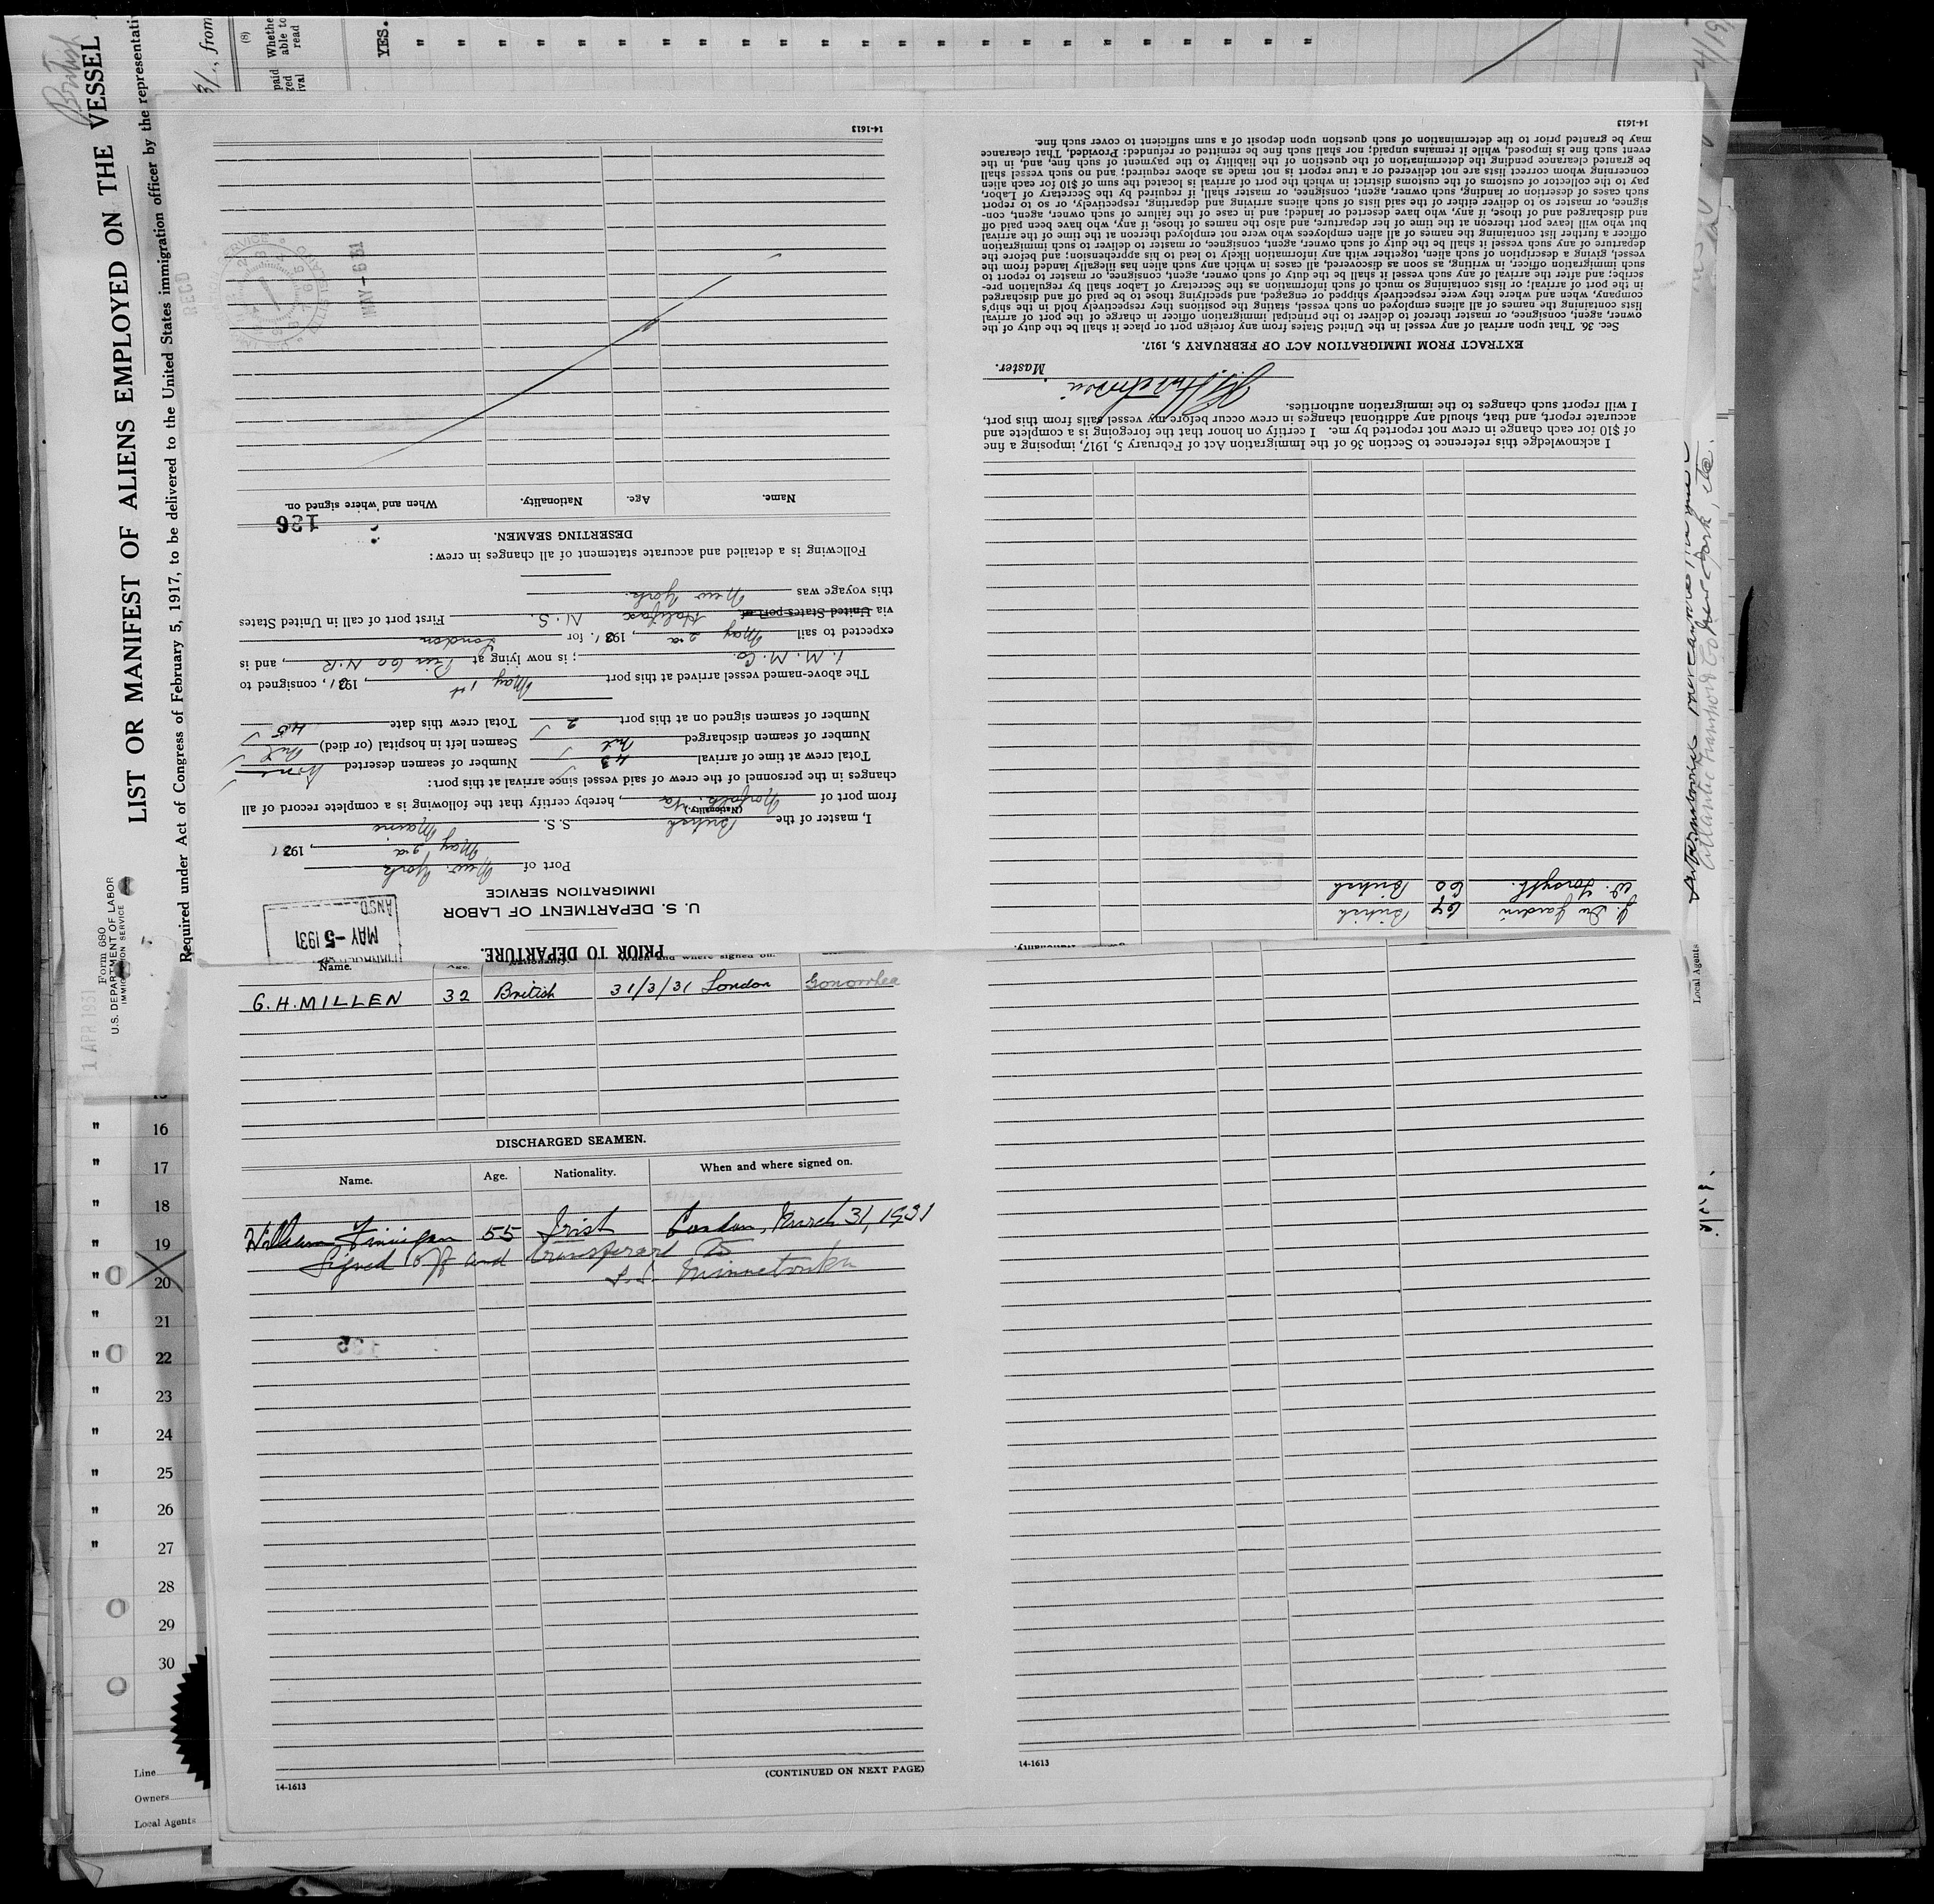 British
LIST OR MANIFEST OF ALIENS EMPLOYED ON THE VESSEL
Required under Act of Congress of February 5, 1917, to be delivered to the United States immigration officer by the representati
Form 680
U.S. DEPARTMENT OF LABOR
IMMIGRATION SERVICE
1 APR 1931
, from
(8)
Whethe
able to
read
YES.
" " " " " " " " " " " " " " " " " " " " " " "
PRIOR TO DEPARTURE.
U. S. DEPARTMENT OF LABOR
IMMIGRATION SERVICE
MAY -5 1931
ANSD
Port of New York
May 2d, 1931
I, master of the British S. S. Maine
(Nationality.)
from port of Norfolk, Va, hereby certify that the following is a complete record of all
changes in the personnel of the crew of said vessel since arrival at this port:
Total crew at time of arrival 43 Number of seamen deserted None
Number of seamen discharged Nil Seamen left in hospital (or died) Nil
Number of seamen signed on at this port 2 Total crew this date 45
The above-named vessel arrived at this port May 1st, 1931, consigned to
I. M. M. Co.; is now lying at Pier 60 N.R., and is
expected to sail May 2d, 1931. for London
via United States port of Halifax N. S. First port of call in United States
this voyage was New York.
Following is a detailed and accurate statement of all changes in crew:
DESERTING SEAMEN.
126
Name. Age. Nationality. When and where signed on.
RECD
MAY -6 31
14-1613
J. Du Jardin 64 British
W. Forsyth. 60 British
I acknowledge this reference to Section 36 of the Immigration Act of February 5, 1917, imposing a fine
of $10 for each change in crew not reported by me. I certify on honor that the foregoing is a complete and
accurate report, and that, should any additional changes in crew occur before my vessel sails from this port,
I will report such changes to the immigration authorities.
Master.
EXTRACT FROM IMMIGRATION ACT OF FEBRUARY 5, 1917.
Sec. 36. That upon arrival of any vessel in the United States from any foreign port or place it shall be the duty of the
owner, agent, consignee, or master thereof to deliver to the principal immigration officer in charge of the port of arrival
lists containing the names of all aliens employed on such vessel, stating the positions they respectively hold in the ship's
company, when and where they were respectively shipped or engaged, and specifying those to be paid off and discharged
in the port of arrival; or lists containing so much of such information as the Secretary of Labor shall by regulation pre-
scribe; and after the arrival of any such vessel it shall be the duty of such owner, agent, consignee, or master to report to
such immigration officer, in writing, as soon as discovered, all cases in which any such alien has illegally landed from the
vessel, giving a description of such alien, together with any information likely to lead to his apprehension; and before the
departure of any such vessel it shall be the duty of such owner, agent, consignee, or master to deliver to such immigration
officer a further list containing the names of all alien employees who were not employed thereon at the time of the arrival
but who will leave port thereon at the time of her departure, and also the names of those, if any, who have been paid off
and discharged and of those, if any, who have deserted or landed; and in case of the failure of such owner, agent, con-
signee, or master so to deliver either of the said lists of such aliens arriving and departing, respectively, or so to report
such cases of desertion or landing, such owner, agent, consignee, or master shall, if required by the Secretary of Labor,
pay to the collector of customs of the customs district in which the port of arrival is located the sum of $10 for each alien
concerning whom correct lists are not delivered or a true report is not made as above required; and no such vessel shall
be granted clearance pending the determination of the question of the liability to the payment of such fine, and, in the
event such fine is imposed, while it remains unpaid; nor shall such fine be remitted or refunded: Provided, That clearance
may be granted prior to the determination of such question upon deposit of a sum sufficient to cover such fine.
14-1613
Name.
G. H. MILLEN 32 British 31/3/31 London Gonorrhea
DISCHARGED SEAMEN.
Name. Age. Nationality. When and where signed on.
William Finnigan 55 Irish London, March 31, 1931
Signed off and transferred to
S.S. Minnetonka
(CONTINUED ON NEXT PAGE)
14-1613
14-1613
" 16
" 17
" 18
" 19
" 20
21
" 22
" 23
" 24
" 25
" 26
" 27
28
29
30
Line
Owners
Local Agents
Local Agents